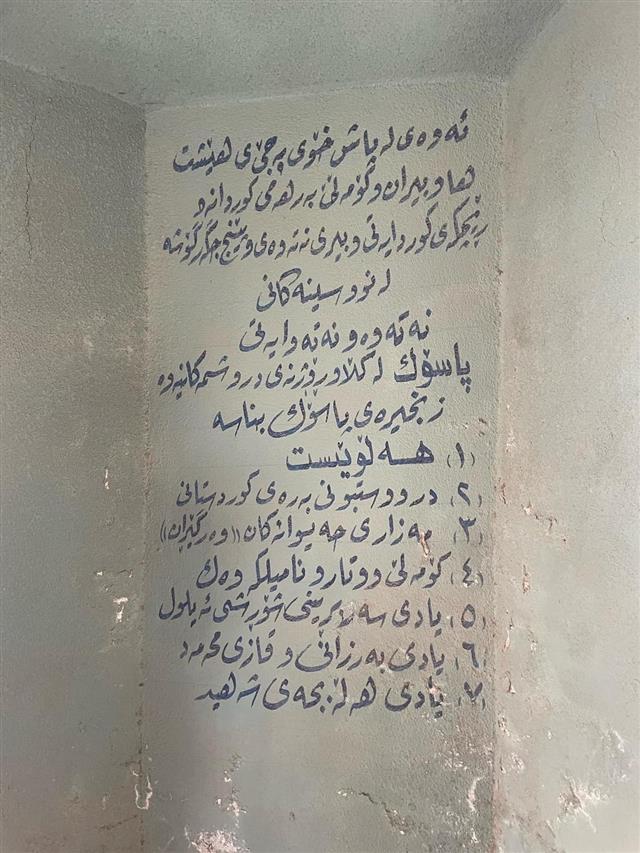 ئەوەی لەپاش خۆی بەجێ ی هێشت
هاوبیران وکۆمەڵێ بەرهەمی کوردانە و
ڕێچکەی کوردایەتی و بیری نەتەوەی و پێنج جگەرگۆشە
لەنووسینەکانی
نەتەوە و نەتەوایەتی
پاسۆک لەکڵاوڕۆژنەی دروشمەکانیەوە
زنجیرەی پاسۆک بناسە
(١) هەڵوێست
(٢) درووستبونی بەرەی کوردستانی
(٣) مەزاری حەیوانەکان ((وەرگێڕان))
(٤) کۆمەڵێ ووتارو نامیلکەوەک
(٥) یادی سەربڕینی شۆڕشی ئەیلول
(٦) یادی بەرزانی و قازی محمەد
(٧) یادی هەڵەبجەی شەهید